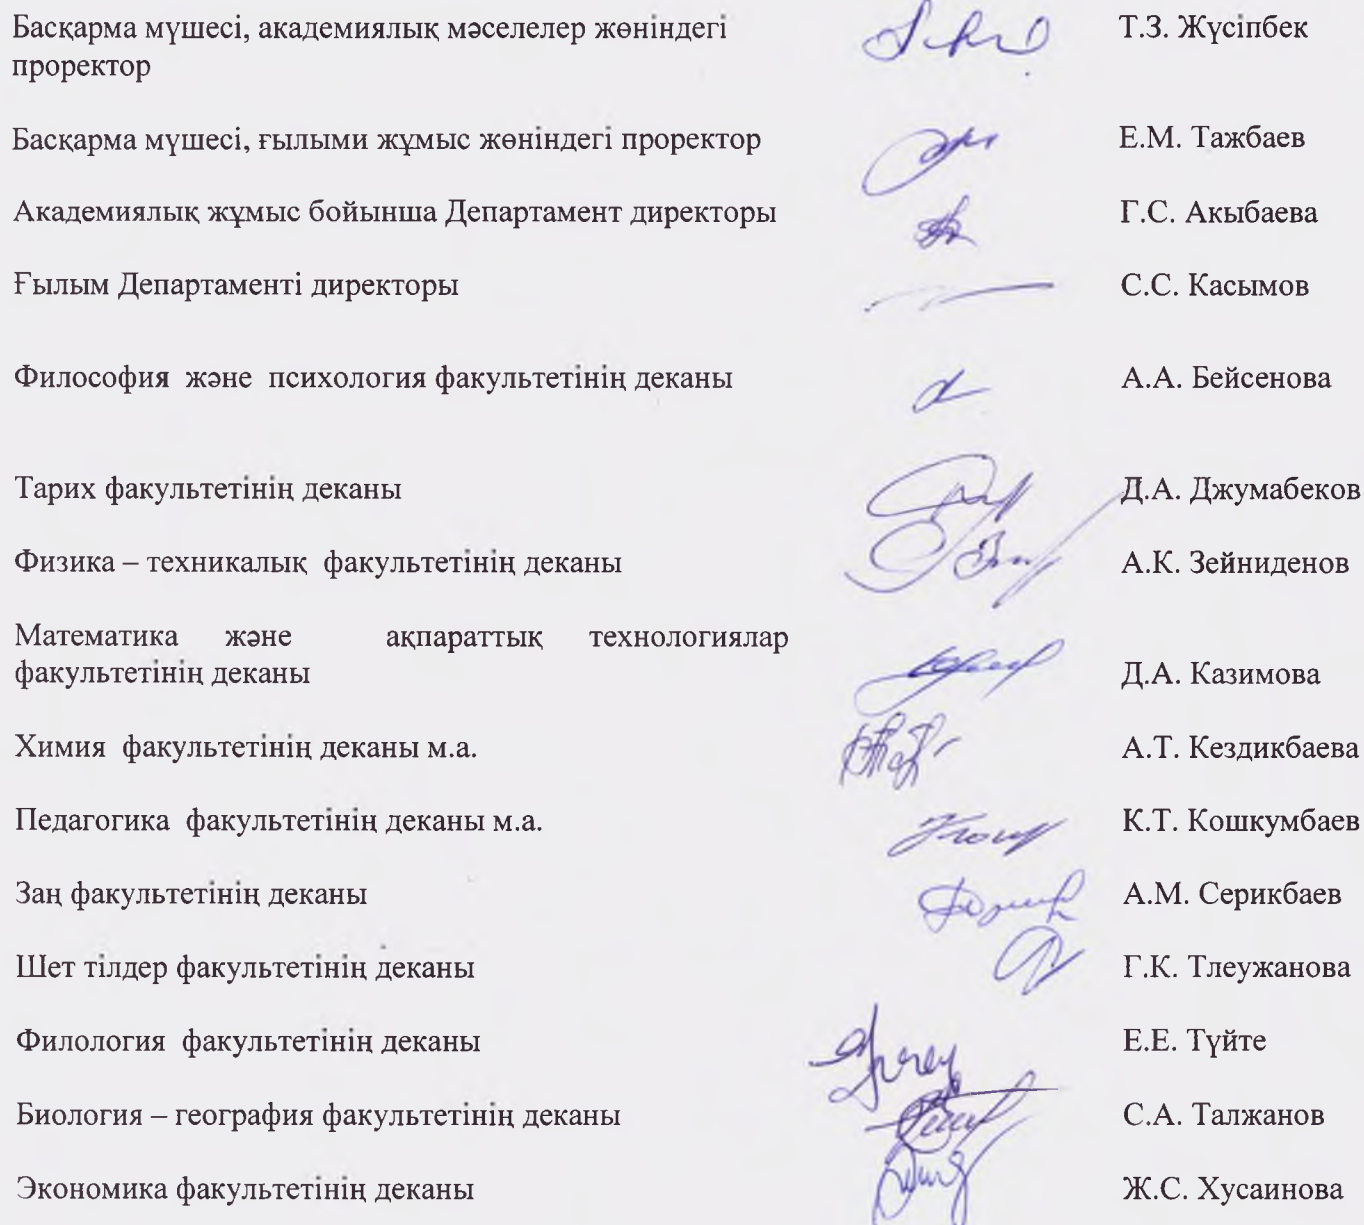 Басқарма мүшесі, академиялық мәселелер жөніндегі
проректор Т.З. Жүсіпбек
Басқарма мүшесі, ғылыми жұмыс жөніндегі проректор Е.М. Тажбаев
Академиялық жұмыс бойынша Департамент директоры Г.С. Акыбаева
Ғылым Департаменті директоры С.С. Касымов
Философия және психология факультетінің деканы А.А. Бейсенова
Тарих факультетінің деканы Д.А. Джумабеков
Физика – техникалық факультетінің деканы А.К. Зейниденов
Математика және ақпараттық технологиялар
факультетінің деканы Д.А. Казимова
Химия факультетінің деканы м.а. А.Т. Кездикбаева
Педагогика факультетінің деканы м.а. К.Т. Кошкумбаев
Заң факультетінің деканы А.М. Серикбаев
Шет тілдер факультетінің деканы Г.К. Тлеужанова
Филология факультетінің деканы Е.Е. Түйте
Биология – география факультетінің деканы С.А. Талжанов
Экономика факультетінің деканы Ж.С. Хусаинова